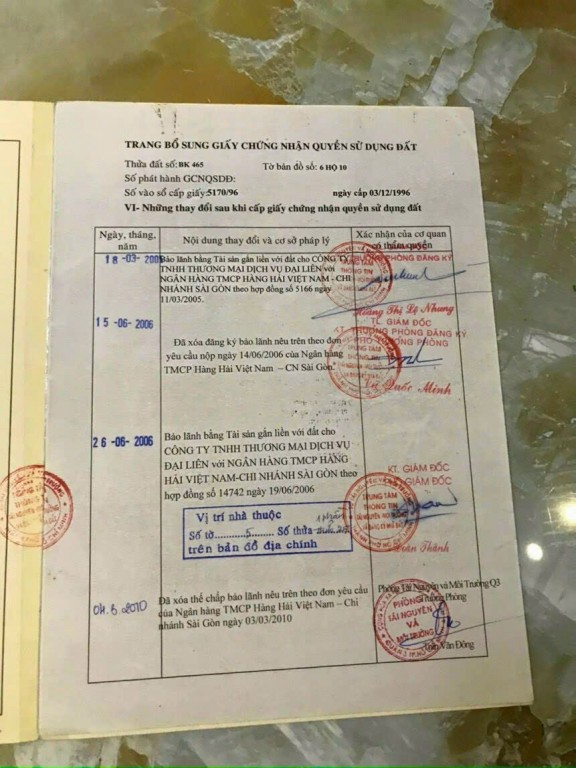 TRANG BỔ SUNG GIẤY CHỨNG NHẬN QUYỀN SỬ DỤNG ĐẤT
Thửa đất số: BK 465 Tờ bản đồ số: 6 HQ 10
Số phát hành GCNQSDĐ:
Số vào sổ cấp giấy: 5170/96 ngày cấp 03/12/1996
VI- Những thay đổi sau khi cấp giấy chứng nhận quyền sử dụng đất
Ngày, tháng, năm
Nội dung thay đổi và cơ sở pháp lý
Xác nhận của cơ quan
có thẩm quyền
18-03-2005
Bảo lãnh bằng Tài sản gắn liền với đất cho CÔNG TY
TNHH THƯƠNG MẠI DỊCH VỤ ĐẠI LIÊN với
NGÂN HÀNG TMCP HÀNG HẢI VIỆT NAM – CHI
NHÁNH SÀI GÒN theo hợp đồng số 5166 ngày
11/03/2005.
TRƯỞNG PHÒNG ĐĂNG KÝ
TRUNG TÂM
THÔNG TIN
Hoàng Thị Lệ Nhung
15-06-2006
Đã xóa đăng ký bảo lãnh nêu trên theo đơn
yêu cầu nộp ngày 14/06/2006 của Ngân hàng
TMCP Hàng Hải Việt Nam – CN Sài Gòn.
TL. GIÁM ĐỐC
KT. TRƯỞNG PHÒNG ĐĂNG KÝ
PHÓ TRƯỞNG PHÒNG
TRUNG TÂM
THÔNG TIN
Vũ Quốc Minh
26-06-2006
Bảo lãnh bằng Tài sản gắn liền với đất cho
CÔNG TY TNHH THƯƠNG MẠI DỊCH VỤ
ĐẠI LIÊN với NGÂN HÀNG TMCP HÀNG
HẢI VIỆT NAM-CHI NHÁNH SÀI GÒN theo
hợp đồng số 14742 ngày 19/06/2006
KT. GIÁM ĐỐC
GIÁM ĐỐC
TRUNG TÂM
THÔNG TIN
Thành
Vị trí nhà thuộc
Số tờ.....5..... Số thửa
trên bản đồ địa chính
04.3.2010
Đã xóa thế chấp bảo lãnh nêu trên theo đơn yêu cầu
của Ngân hàng TMCP Hàng Hải Việt Nam – Chi
nhánh Sài Gòn ngày 03/03/2010
Phòng Tài Nguyên và Môi Trường Q3
Trưởng Phòng
PHÒNG
TÀI NGUYÊN
VÀ
MÔI TRƯỜNG
Văn Đông